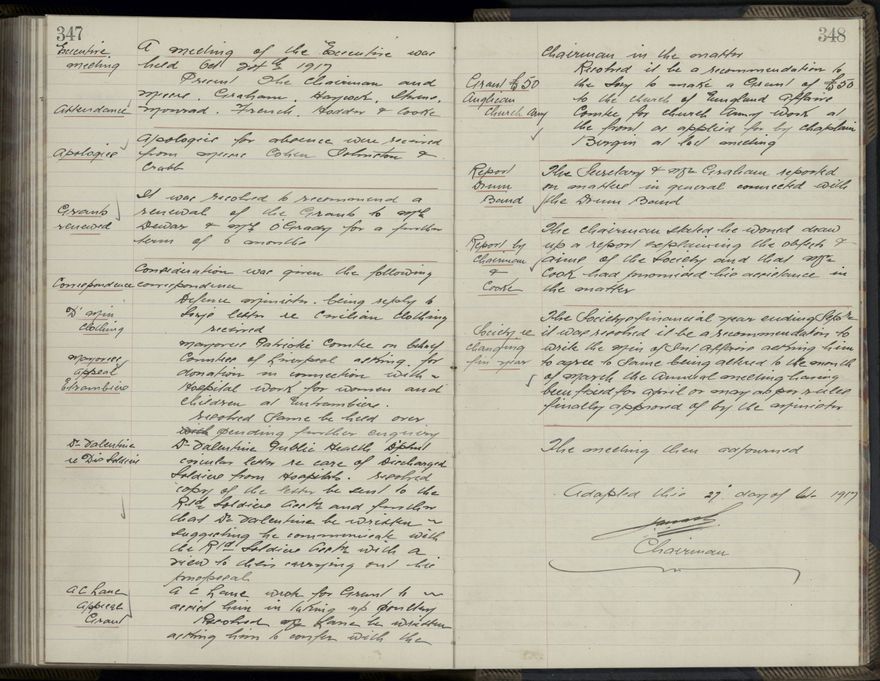 347
Executive meeting
A meeting of the Executive was
held Oct 1917
Present The Chairman and
Attendance
Messrs. Graham. Haycock. Stevens.
Monrad. French. Hodder & Cooke
Apologies
Apologies for absence were received
from Messrs Cohen Johnston &
Crabb
Grants renewed
It was resolved to recommend a
renewal of the Grants to Mrs
Dewar & Mrs O'Grady for a further
term of 6 months
Consideration was given the following
Correspondence
correspondence
D' Min Clothing
Defence Minister. being reply to
Socys letter re Civilian Clothing
received
Mayoress appeal
Mayoress Patriotic Comtee on behalf
Comtee of Liverpool asking for
donation in connection with
Hospital work for women and
Children at
resolved same be held over
pending further enquiry
Dr Valentine re Dis Soldiers
Dr Valentine Public Health Dptmt
circular letter re care of Discharged
Soldiers from Hospitals. resolved
copy of the letter be sent to the
Rtd Soldiers Assn and further
that Dr Valentine be written
suggesting he communicate with
the Rtd Soldiers Assn with a
view to their carrying out his
proposal
A C Lane Appeal Grant
A C Lane wrote for Grant to
assist him in taking up poultry
Resolved Mr Lane be written
asking him to confer with the
348
Chairman in the matter
Grant £50 Anglican Church Army
Resolved it be a recommendation to
the Socy to make a Grant of £50
to the Church of England Affairs
Comtee for Church Army work at
the front as applied for by Chaplain
Bergin at last meeting
Report Drum Band
The Secretary & Mr Graham reported
on matters in general connected with
the Drum Band
Report by Chairman & Cooke
The Chairman stated he would draw
up a report explaining the objects &
aims of the Society and that Mr
Cook had promised his assistance in
the matter
Society re changing fin year
The Society financial year ending
it was resolved it be a recommendation to
write the Min of Int Affairs asking him
to agree to same being altered to the month
of March the Annual meeting having
been fixed for April or May as per rules
finally approved of by the Minister
The meeting then adjourned
Adopted this 29 day of Oct 1917
Chairman